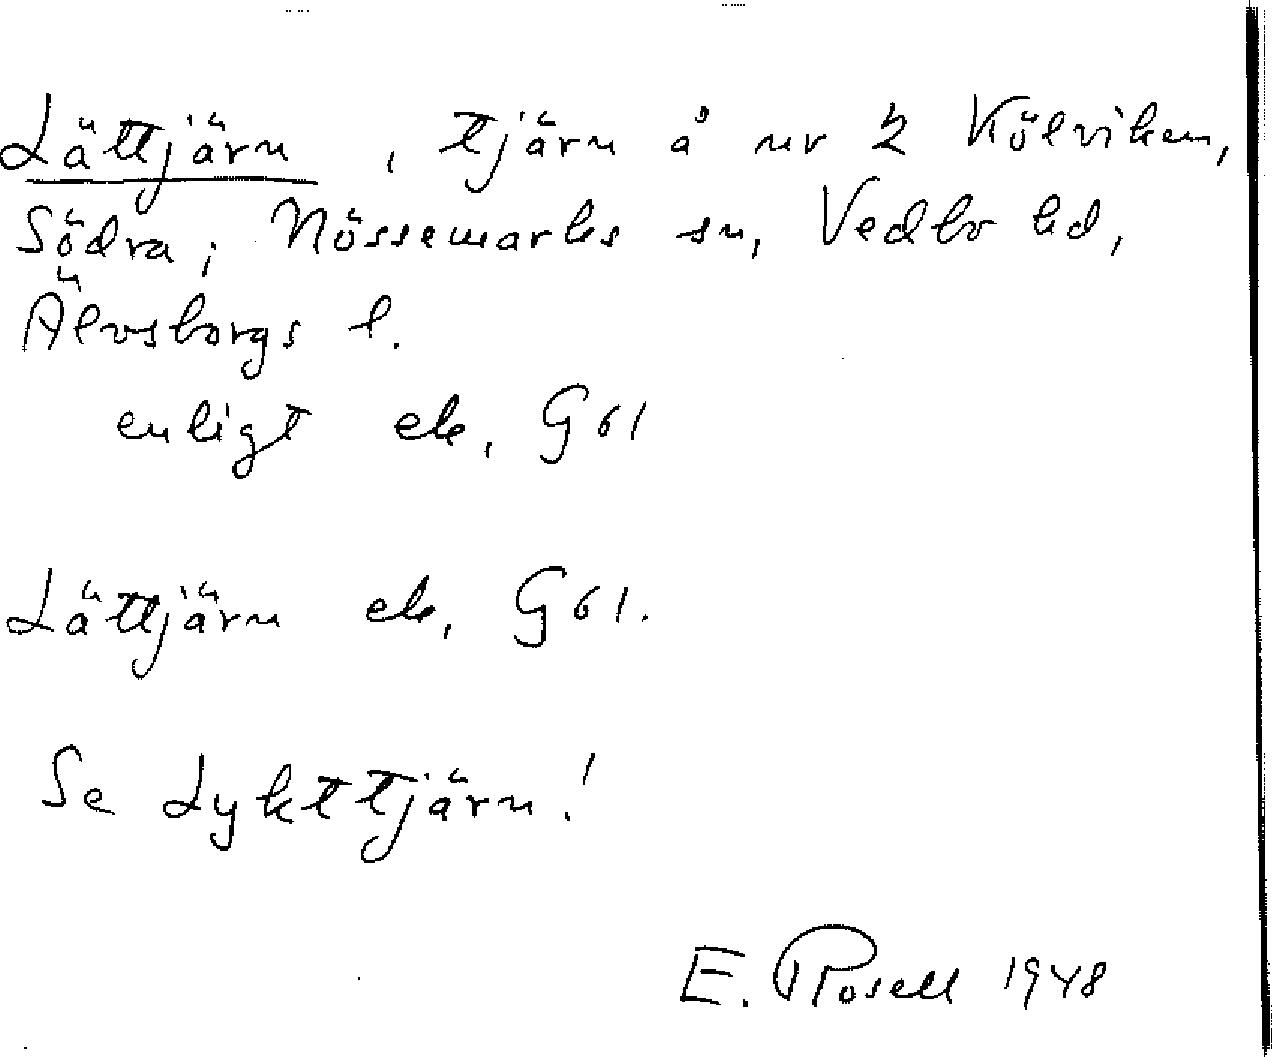 Lättjärn, tjärn å nr 2 Kölviken,
Södra; Nössemarks sn, Vedbo hd,
Älvsborgs l.
enligt ek, G61
Lättjärn ek, G61.
Se Lykttjärn!
E. Rosell 1948